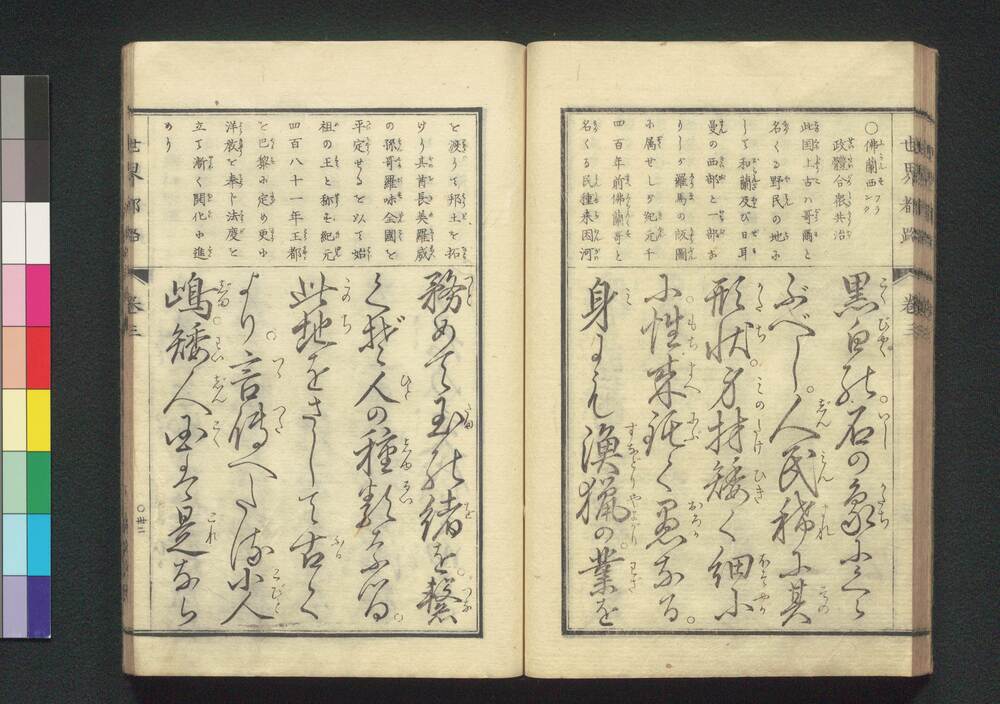 世界都路
巻三
○佛蘭西
政體合衆共治
此国上古ハ哥爾と
名くる野民の地に
して和蘭及び日耳
曼の西部と一部お
りしが羅馬の版圖
に属せしが紀元千
四百年前佛蘭哥と
名くる民種来因河
黒白の石の
ぶべし。人民稀に其
形状。身材矮く細小
に性来鈍く愚なる。
身よも漁猟の業を
と渡りて邦土を拓
けり其酋長美羅威
の孫哥羅味全國を
平定せるを以て始
祖の王と称す紀元
四百八十一年王都
を巴黎に定め更に
洋教を奉じ法度を
立て漸く開化に進
めり
務めて玉の緒を。繋
人の種類なる。
此地をさして古く
より。言傳へ小人
嶋。矮人国は是なら
世界都路
巻三